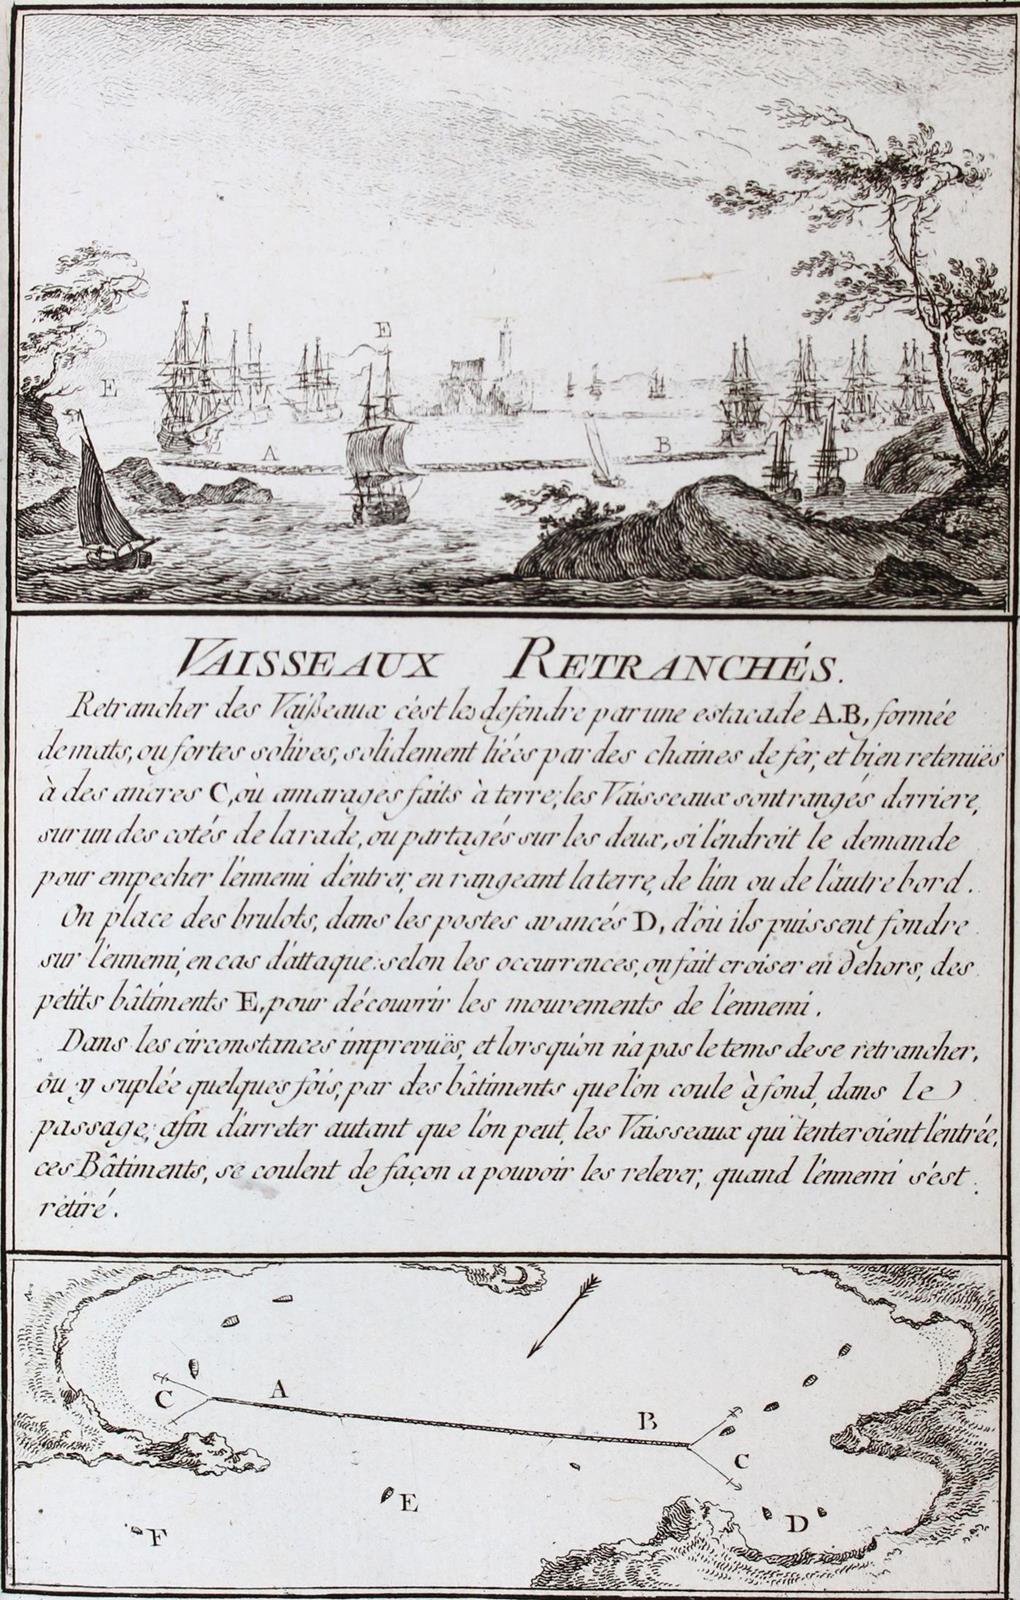 E
E
A
B
D
VAISSEAUX RETRANCHÉS.
Retrancher des Vaisseaux c'est les defendre par une estacade A.B, formée
de mats, ou fortes solives, solidement liées par des chaines de fer, et bien retenuës
à des ancres C, où amarages faits à terre; les Vaisseaux sont rangés derriere,
sur un des cotés de la rade, ou partagés sur les deux, si l'endroit le demande
pour empecher l'ennemi d'entrer, en rangeant la terre, de l'un ou de l'autre bord.
On place des brulots, dans les postes avancés D, d'où ils puissent fondre
sur l'ennemi, en cas d'attaque: selon les occurrences, on fait croiser en dehors, des
petits bâtiments E, pour découvrir les mouvements de l'ennemi.
Dans les circonstances imprevuës, et lorsqu'on n'a pas le tems de se retrancher,
on y suplée quelques fois, par des bâtiments que l'on coule à fond, dans le
passage; afin d'arreter autant que l'on peut, les Vaisseaux qui tenteroient l'entrée,
ces Bâtiments, se coulent de façon a pouvoir les relever, quand l'ennemi s'est
retiré.
C
A
B
C
E
D
F